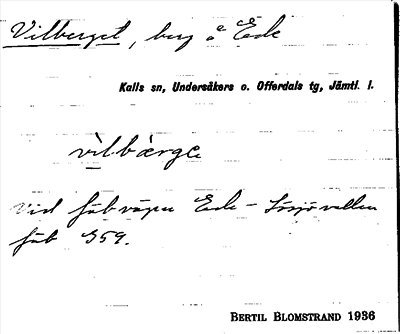 Vilberget, berg å Ede
Kalls sn, Undersåkers o. Offerdals tg, Jämtl. l.
vìlbærge
Vid fäbvägen Ede - Sösjövallen
fäb 959.
BERTIL BLOMSTRAND 1936